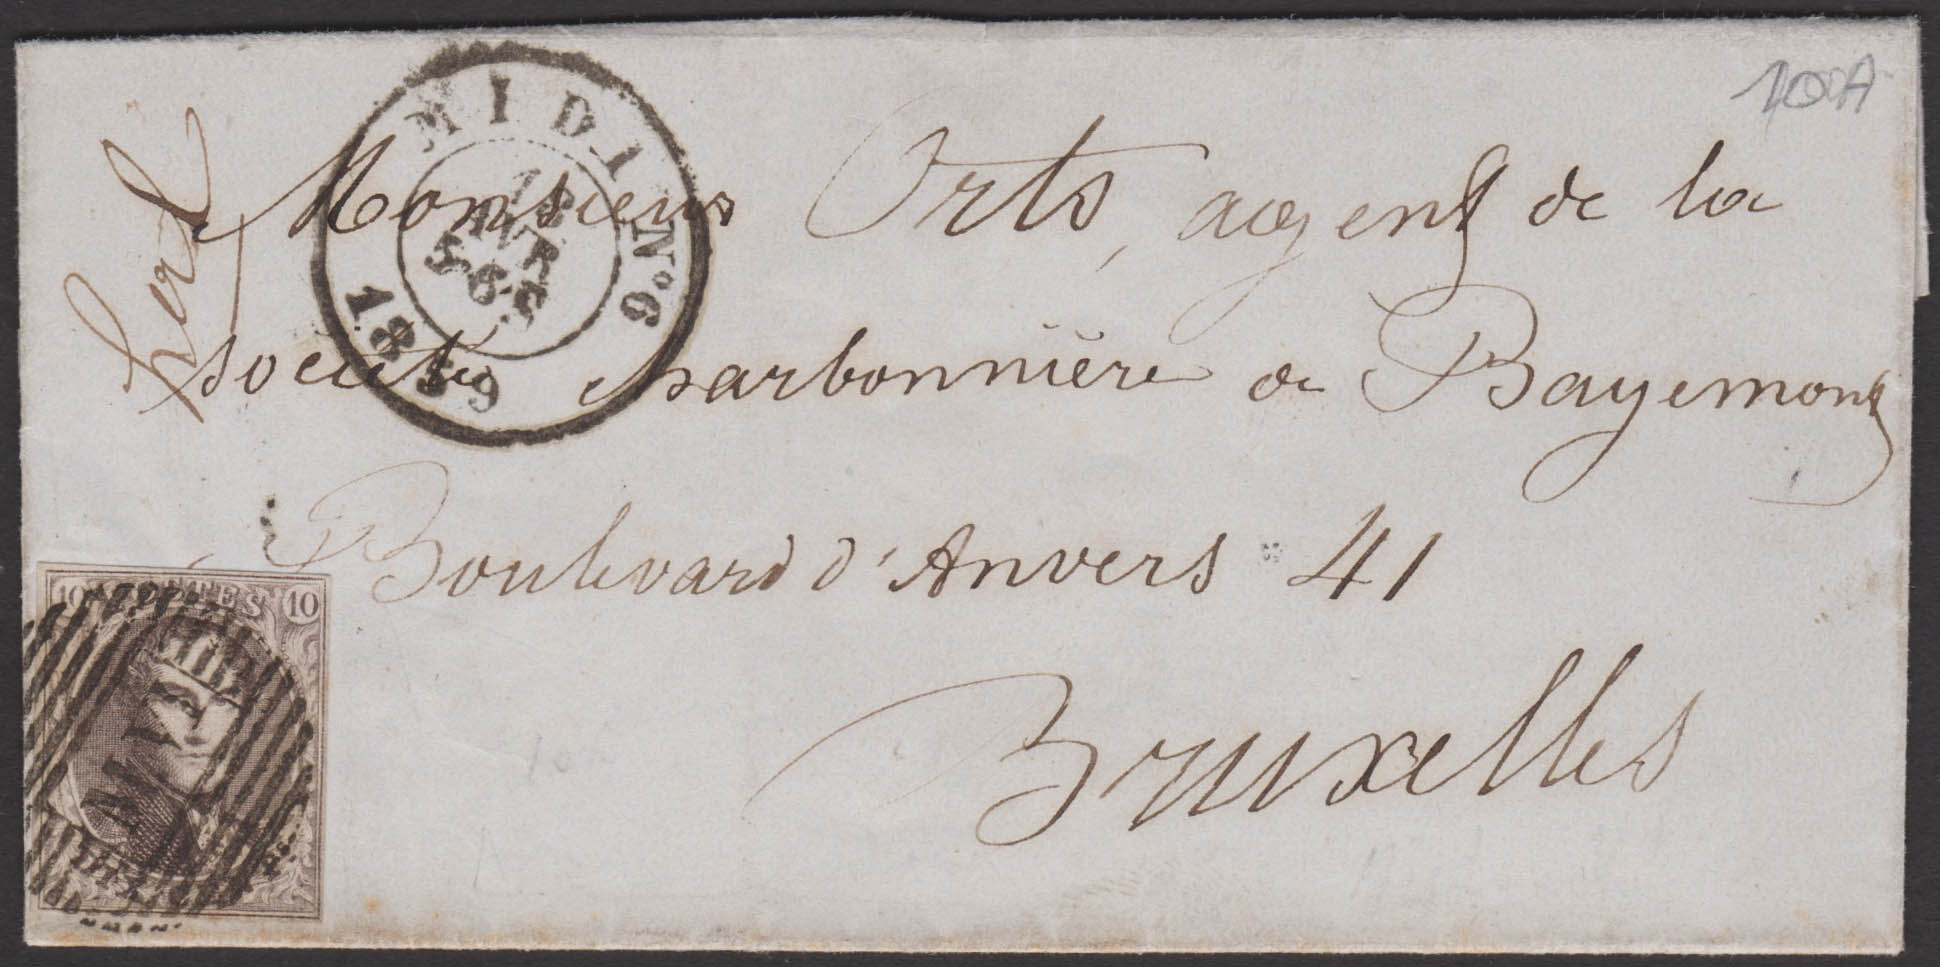 10A
MIDI N° 6
18 59
12
AVR
5-6 S
Monsieur Orts, agent de la
société charbonnière de Bayemont
Boulevard d'Anvers 41
Bruxelles
10 POSTES 10